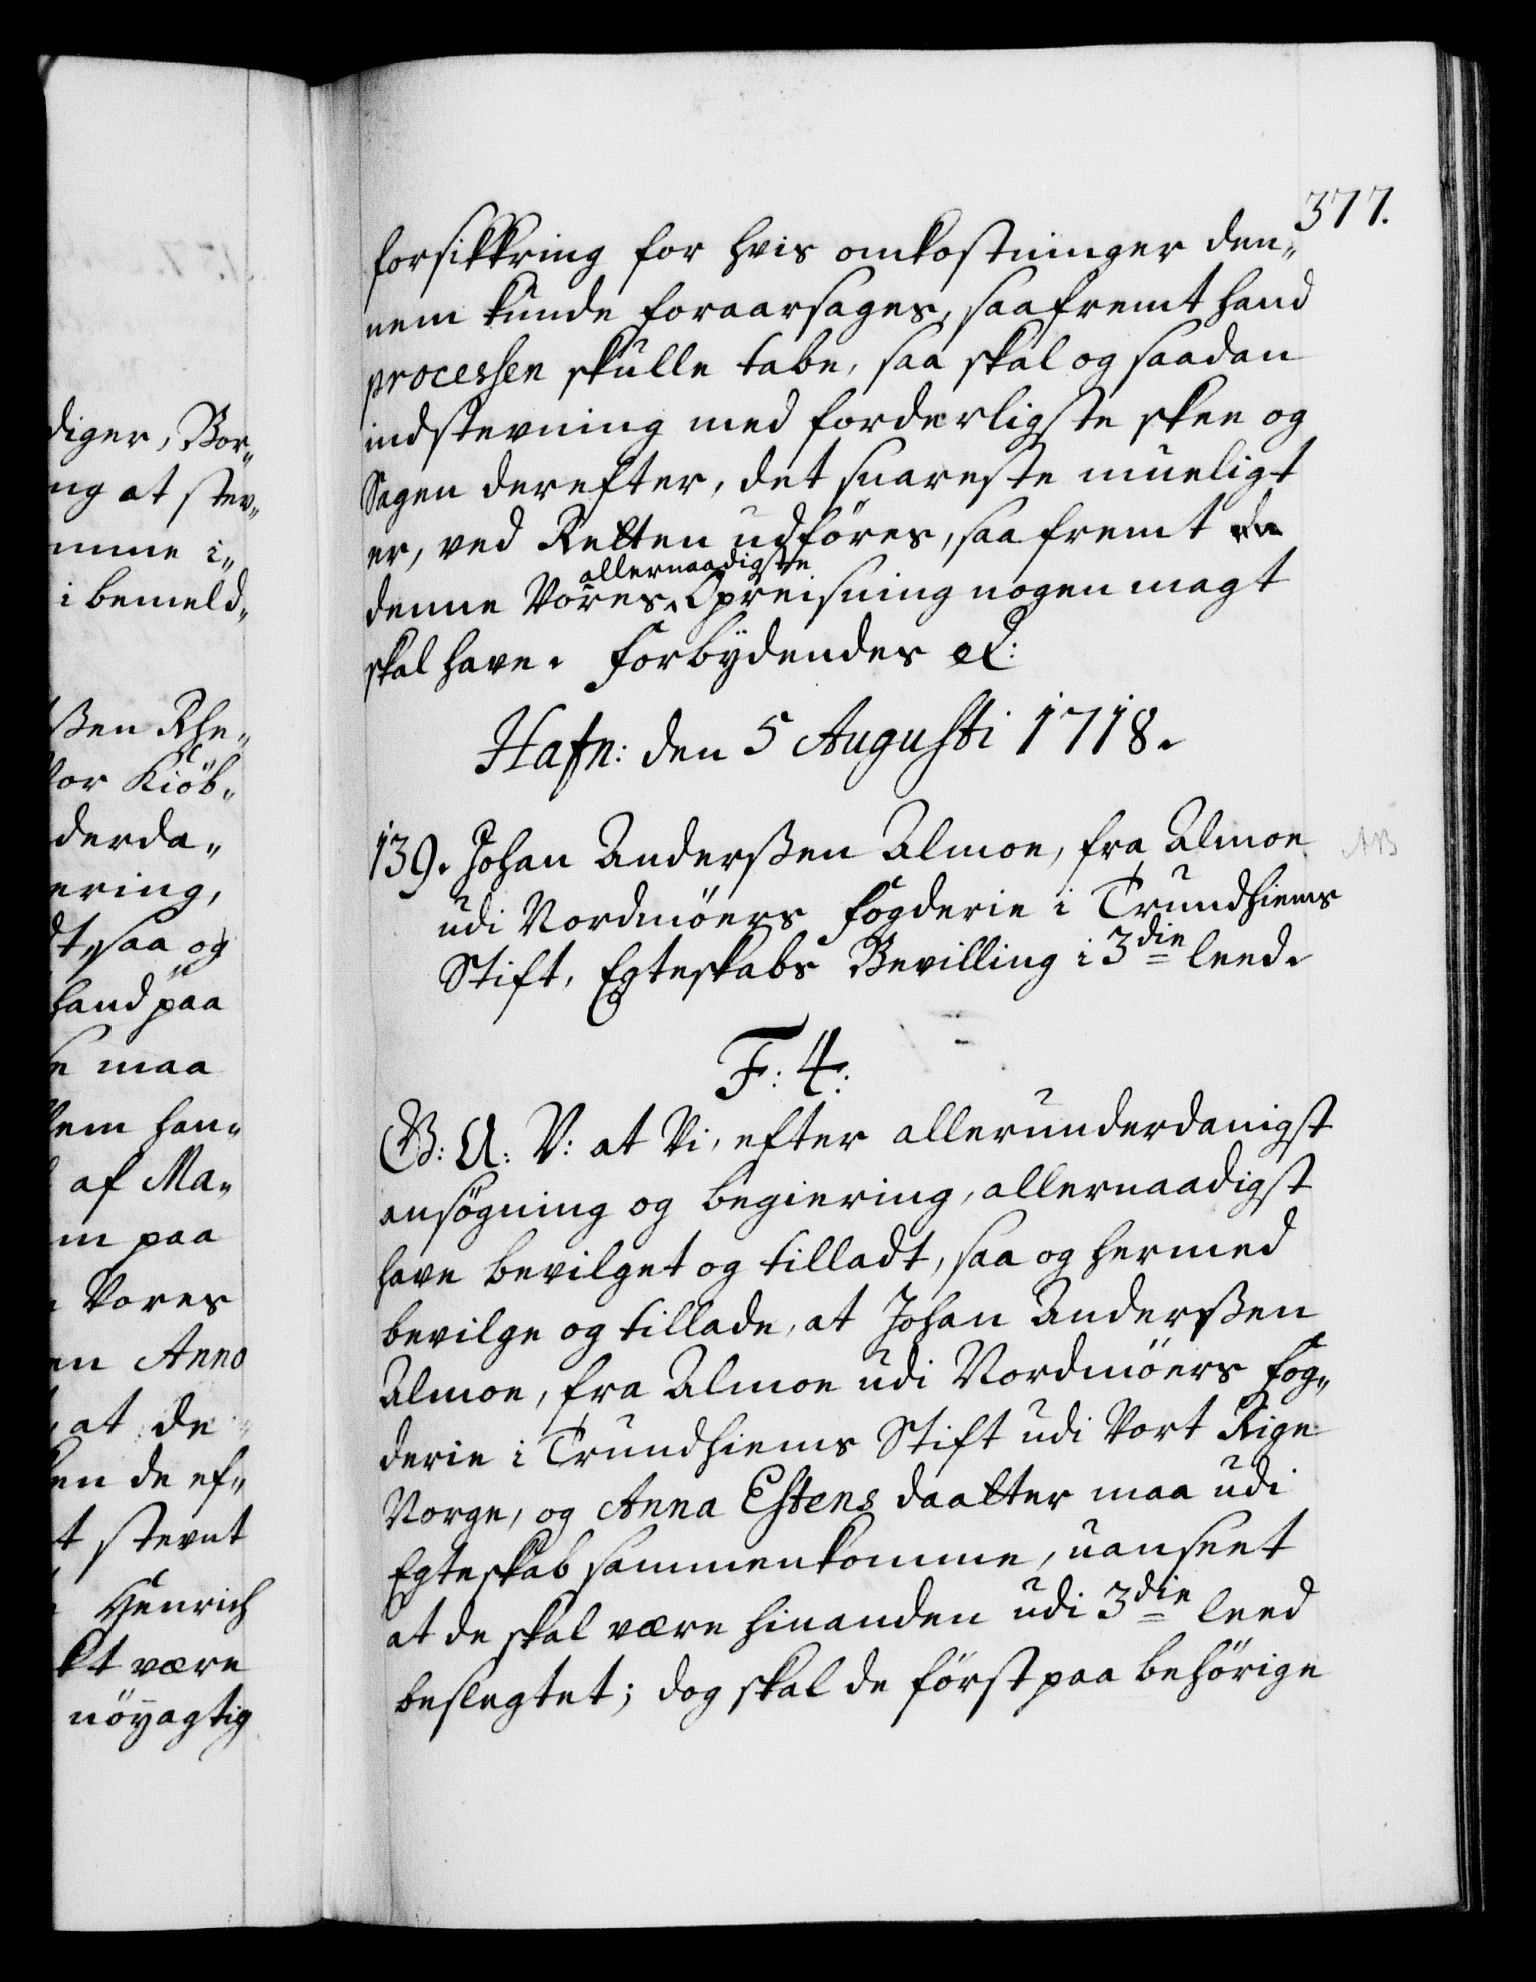 377.
forsikkring for hvis omkostninger den„
nem kunde foraarsages, saafremt hand
processen skulle tabe, saa skal og saadan
indstevning med forderligste skee og
Sagen derefter, det snareste mueligt
er, ved Retten udföres, saa fremt
allernaadigste
denne Vores Opreisning nogen magt
skal have. Forbÿdendes etc:
Hafn: den 5 Augusti 1718.
139. Johan Anderßen Almoe, fra Almoe
udi Nordmöers Fogderie i Trundhiems
Stift, Egteskabs Bevilling i 3die leed.
F: 4:
G: A: V: at Vi, efter allerunderdanigst
ansögning og begiering, allernaadigst
have bevilget og tilladt, saa og hermed
bevilge og tillade, at Johan Anderßen
Almoe, fra Almoe udi Nordmöers Fog„
derie i Trundhiems Stift udi Vort Rige
Norge, og Anna Estens daatter maa udi
Egteskab sammenkomme, uanseet
at de skal være hinanden udi 3die leed
beslegtet; dog skal de först paa behörige
diger, Bor„
ng at stev„
mme i„
i bemeld„
ßen Rhe„
for Kiöb„
derda„
ering,
dt, saa og
hand paa
e maa
dem han„
af Ma„
m paa
Vores
en Anno
at de
en de ef„
t stevnt
Henrich
kt være
nöÿagtig